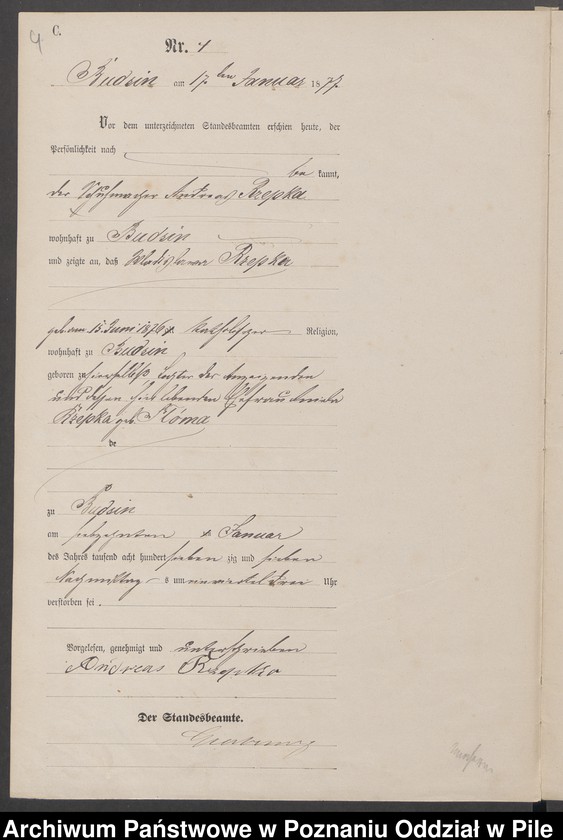 C.
Nr. 1
Budsin am 17ten Januar 1877
Vor dem unterzeichneten Standesbeamten erschien heute, der
Persönlichkeit nach
bekannt,
der Schuhmacher Andreas Rzepka
wohnhaft zu Budsin
und zeigte an, daß Rzepka
geb am 15. Juni 1876, katholischer Religion,
wohnhaft zu Budsin
geboren zu hierselbst Tochter des Anzeigenden
und dessen lebenden Ehefrau
Rzepka geb. Kloma
de
zu Budsin
am siebzehnten Januar
des Jahres tausend acht hundert sieben zig und sieben
Nachmittag s um Uhr
verstorben sei.
Vorgelesen, genehmigt und unterschrieben
Andreas Rzepka
Der Standesbeamte.
Archiwum Państwowe w Poznaniu Oddział w Pile